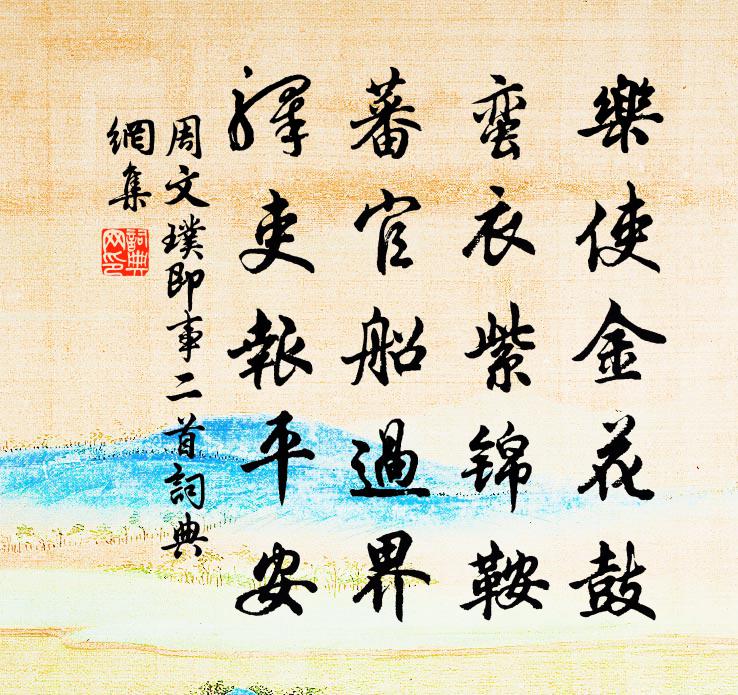 樂使金花鼓
蛮衣紫錦鞍
蕃官船過界
驛吏報平安
周文璞即事二首詞典
網集
詞典網印